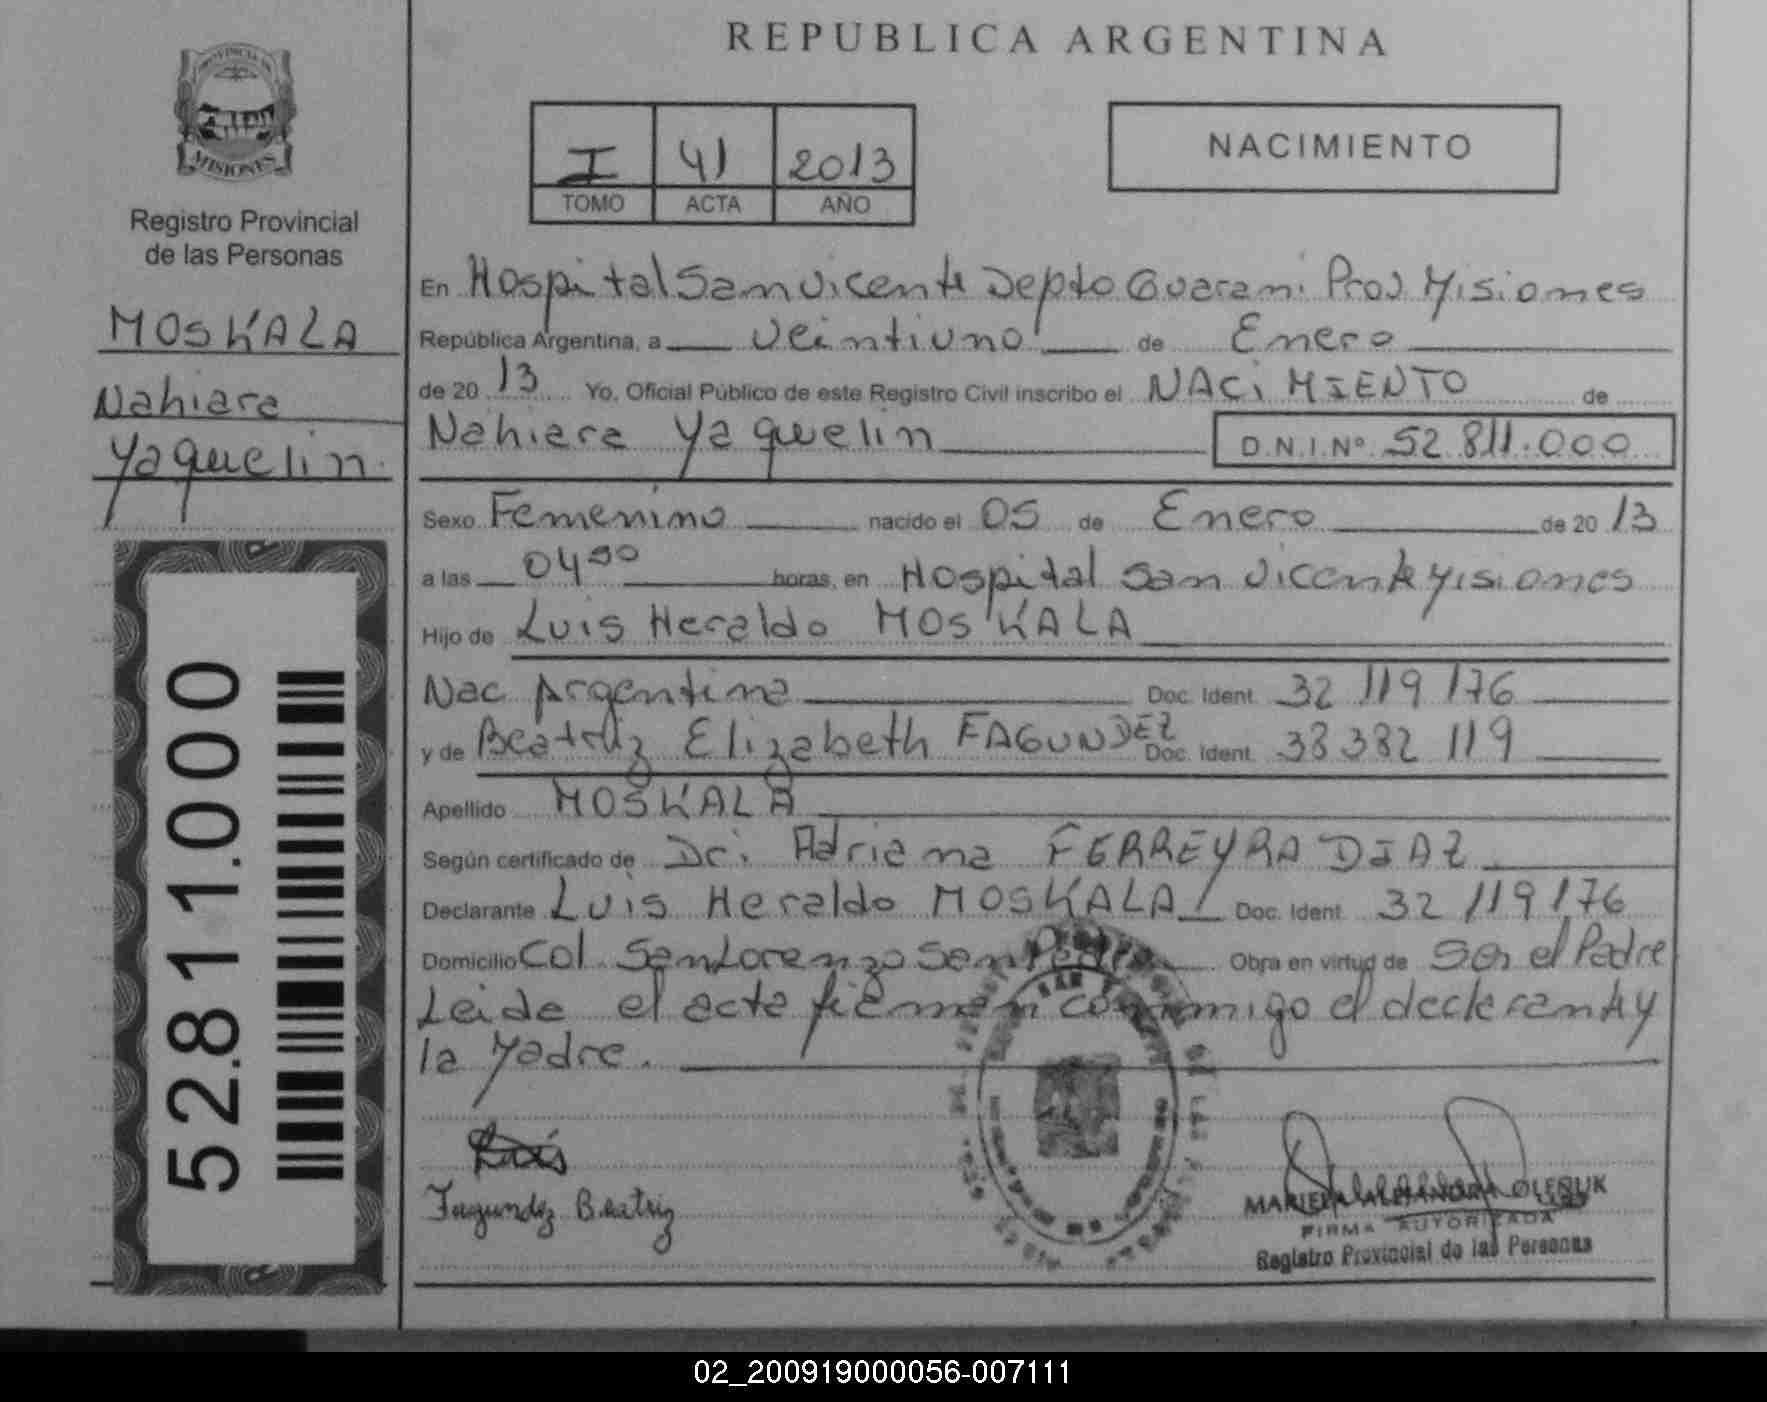 PROVINCIA DE
MISIONES
Registro Provincial
de las Personas
MOSKALA
Nahiara
Yaquelin
52.811.000
REPUBLICA ARGENTINA
I 41 2013
TOMO ACTA AÑO
NACIMIENTO
En Hospital San Vicente Depto Guarani Prov Misiones
República Argentina, a veintiuno de Enero
de 20 13 Yo, Oficial Público de este Registro Civil inscribo el NACIMIENTO de
Nahiara Yaquelin D.N.I.Nº 52.811.000
Sexo Femenino nacido el 05 de Enero de 20 13
a las 04 horas, en Hospital San Vicente Misiones
Hijo de Luis Heraldo MOSKALA
Nac Argentina Doc. Ident. 32 119 176
y de Beatriz Elizabeth FAGUNDEZ Doc. Ident. 38 382 119
Apellido MOSKALA
Según certificado de Dra. Adriana FERREYRA DIAZ
Declarante Luis Heraldo MOSKALA Doc. Ident. 32 119 176
Domicilio Col. San Lorenzo San Pedro Obra en virtud de Ser el Padre
Leida el acta firman conmigo el declarante y
la Madre.
Luis
Fagundez Beatriz
MARIELA ALEJANDRA OLENIUK
FIRMA AUTORIZADA
Registro Provincial de las Personas
02_200919000056-007111